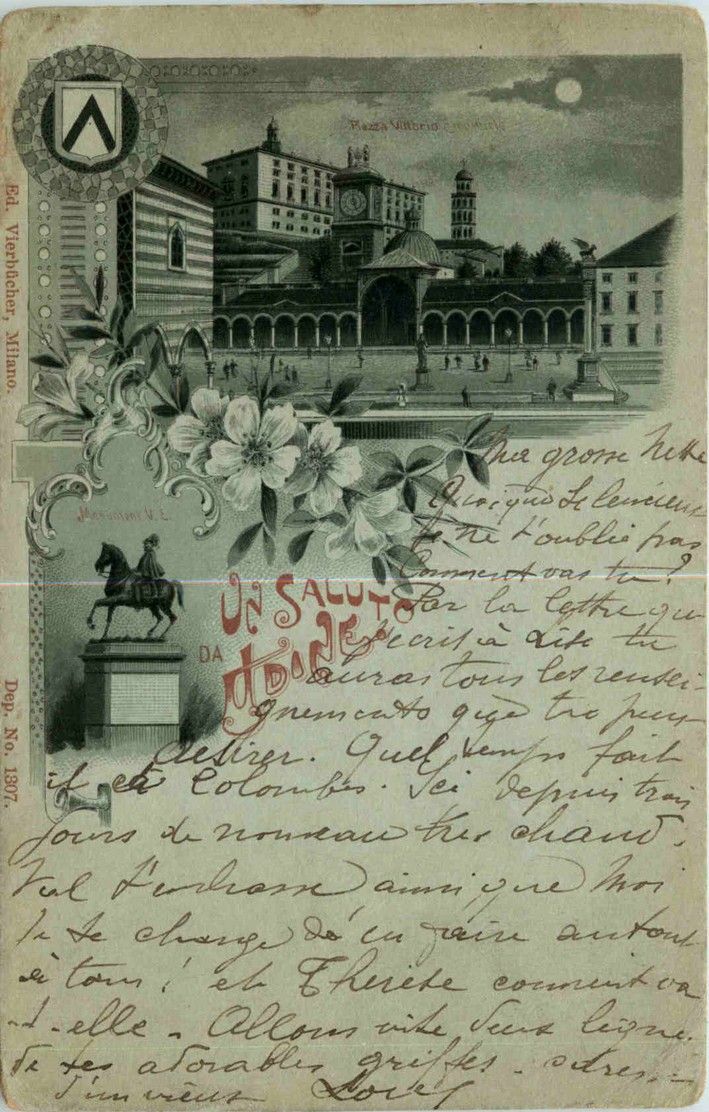 Piazza Vittorio Emanuele
Ed. Vierbücher, Milano.
Dep. No. 1307.
Monument V. E.
UN SALUTO
DA UDINE
Ma grosse
Quoique silencieuse
je ne t'oublie pas
Comment vas tu?
Par la lettre que
j'ecris à Lise tu
auras tous les rensei
gnements que tu peux
desirer. Quel temps fait
il à Colombes. Ici depuis trois
jours de nouveau tres chaud.
t'embrasse ainsi que Moi
Je te charge d'en faire autant
à tous! et Therese comment va
-t-elle - Allons vite deux lignes
de tes adorables griffes -
d'un vieux